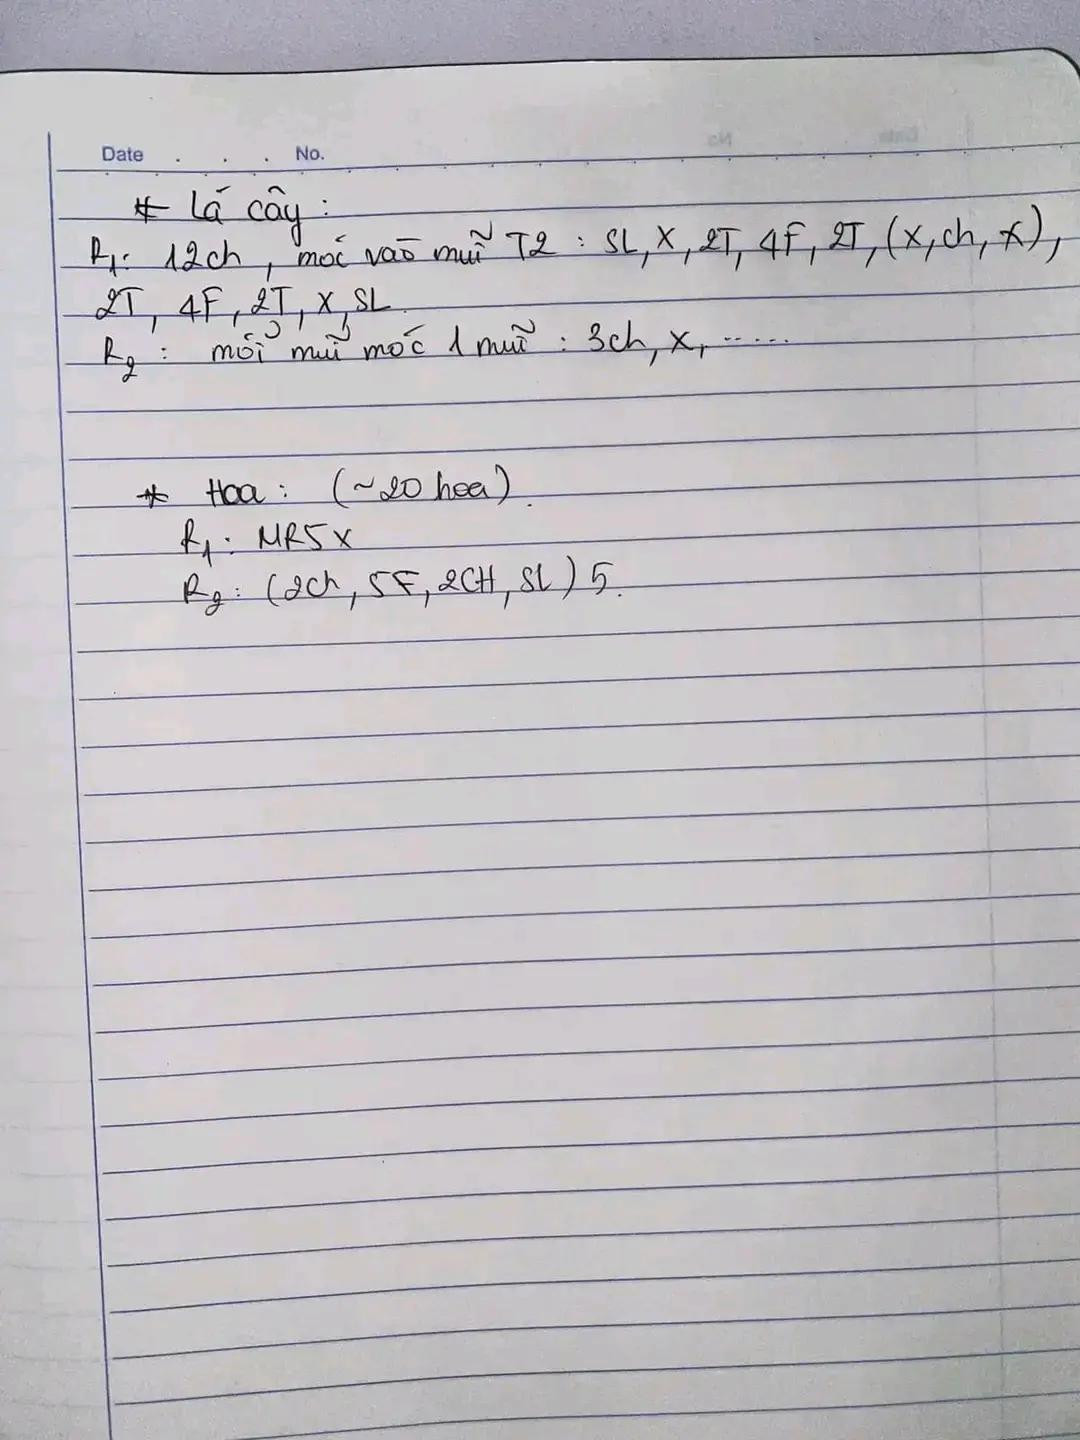 Date . . . No.
* Lá cây :
R1: 12ch, móc vào mũi T2 : SL, X, 2T, 4F, 2T, (X, ch, X),
2T, 4F, 2T, X, SL
R2 : mỗi mũi móc 1 mũi : 3ch, X, ......
* Hoa : (~20 hoa).
R1: MR5X
R2: (2ch, 5F, 2CH, SL) 5.